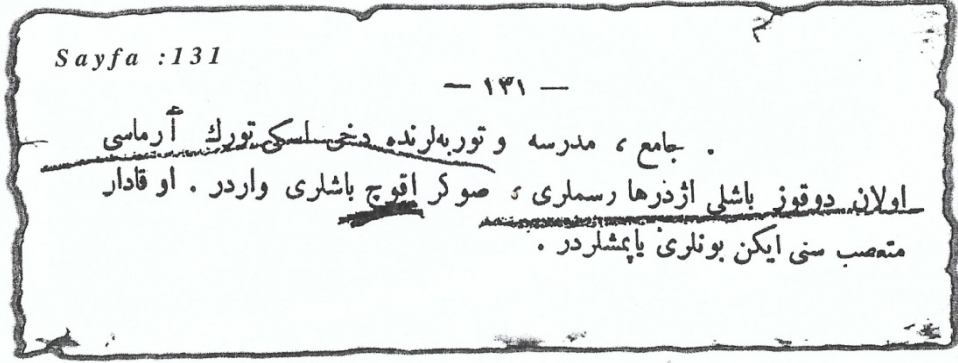 Sayfa :131
— ١٣١ —
. جامع ، مدرسه و توربه‌لرنده دخی اسكی تورك آرماسی
اولان دوقوز باشلی اژدرها رسملری ، صوكر اقوچ باشلری واردر . او قادار
متعصب سنی ایكن بونلری یاپمشلردر .